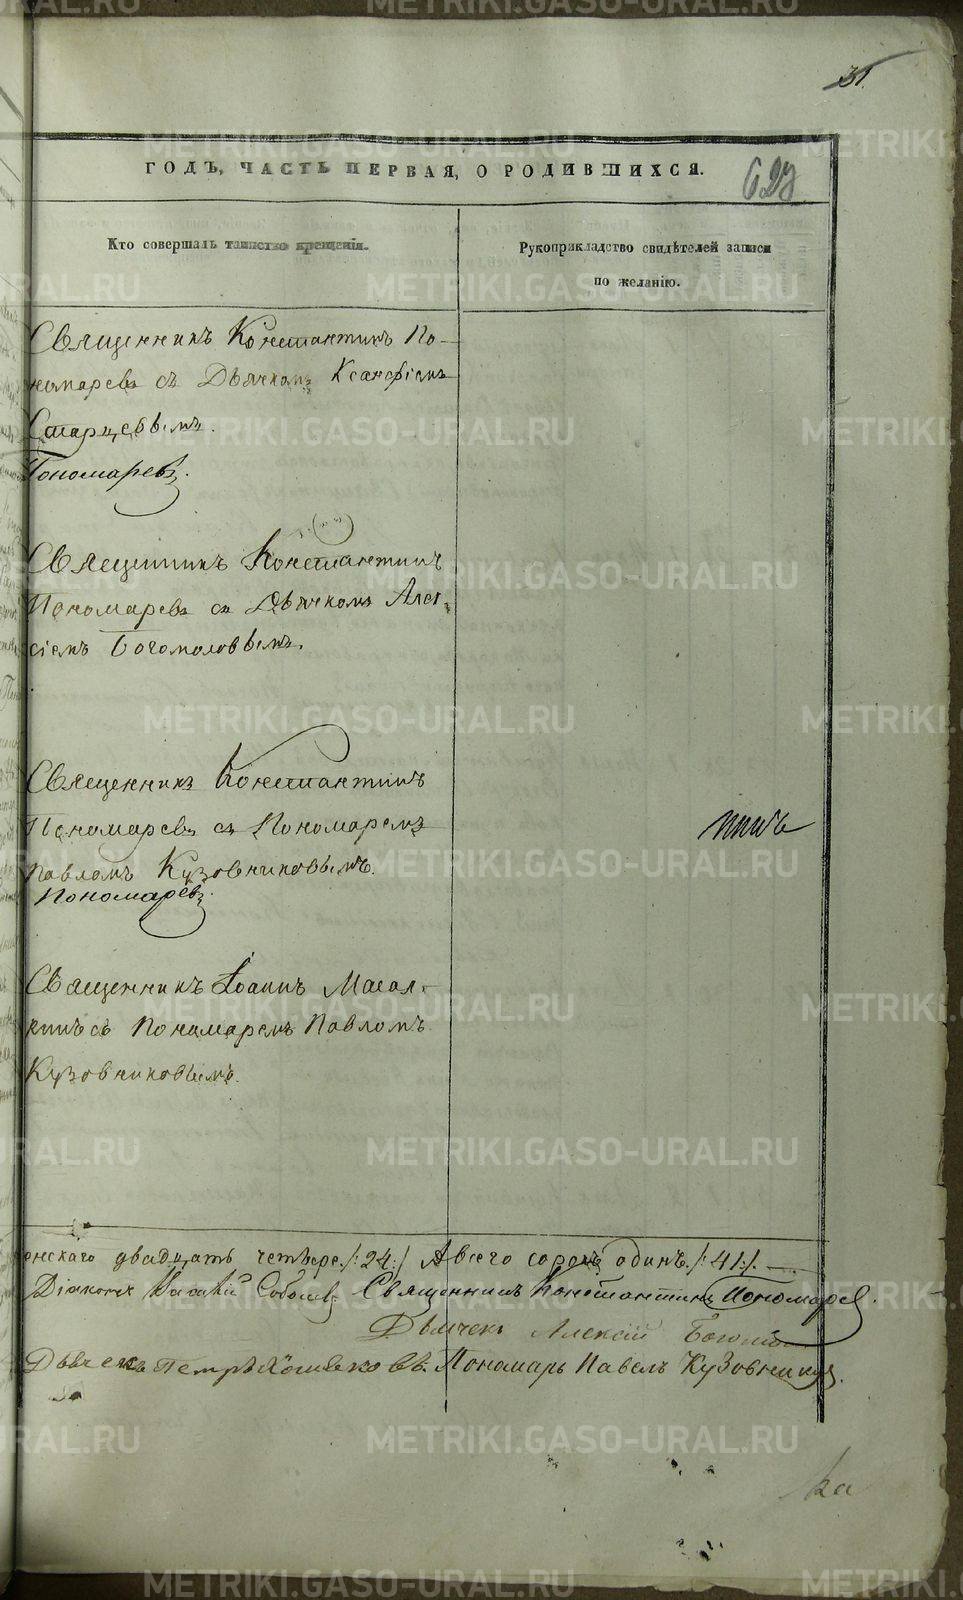 31.
ГОДЪ, ЧАСТЬ ПЕРВАЯ, О РОДИВШИХСЯ.
627
Кто совершалъ таинство крещенія.
Рукоприкладство свидѣтелей записи
по желанію.
Священникъ Константинъ По-
номаревъ съ Дьячкомъ Ксанфіемъ
Старцевымъ.
Пономаревъ.
Священникъ Константинъ
Пономаревъ съ Дьячкомъ Алек-
сіемъ Богомоловымъ.
Священникъ Константинъ
Пономаревъ съ Пономаремъ
Павломъ Кузовниковымъ.
Пономаревъ.
Священникъ Іоаннъ Масал-
кинъ съ Пономаремъ Павломъ
Кузовниковымъ.
енскаго двадцать четыре /:24:/ А всего сорокъ одинъ. /:41:/.
Діаконъ Соболевъ Священникъ Константинъ Пономаревъ.
Дьячекъ Алексій
Дьячекъ Петръ Пономарь Павелъ Кузовниковъ.
METRIKI.GASO-URAL.RU